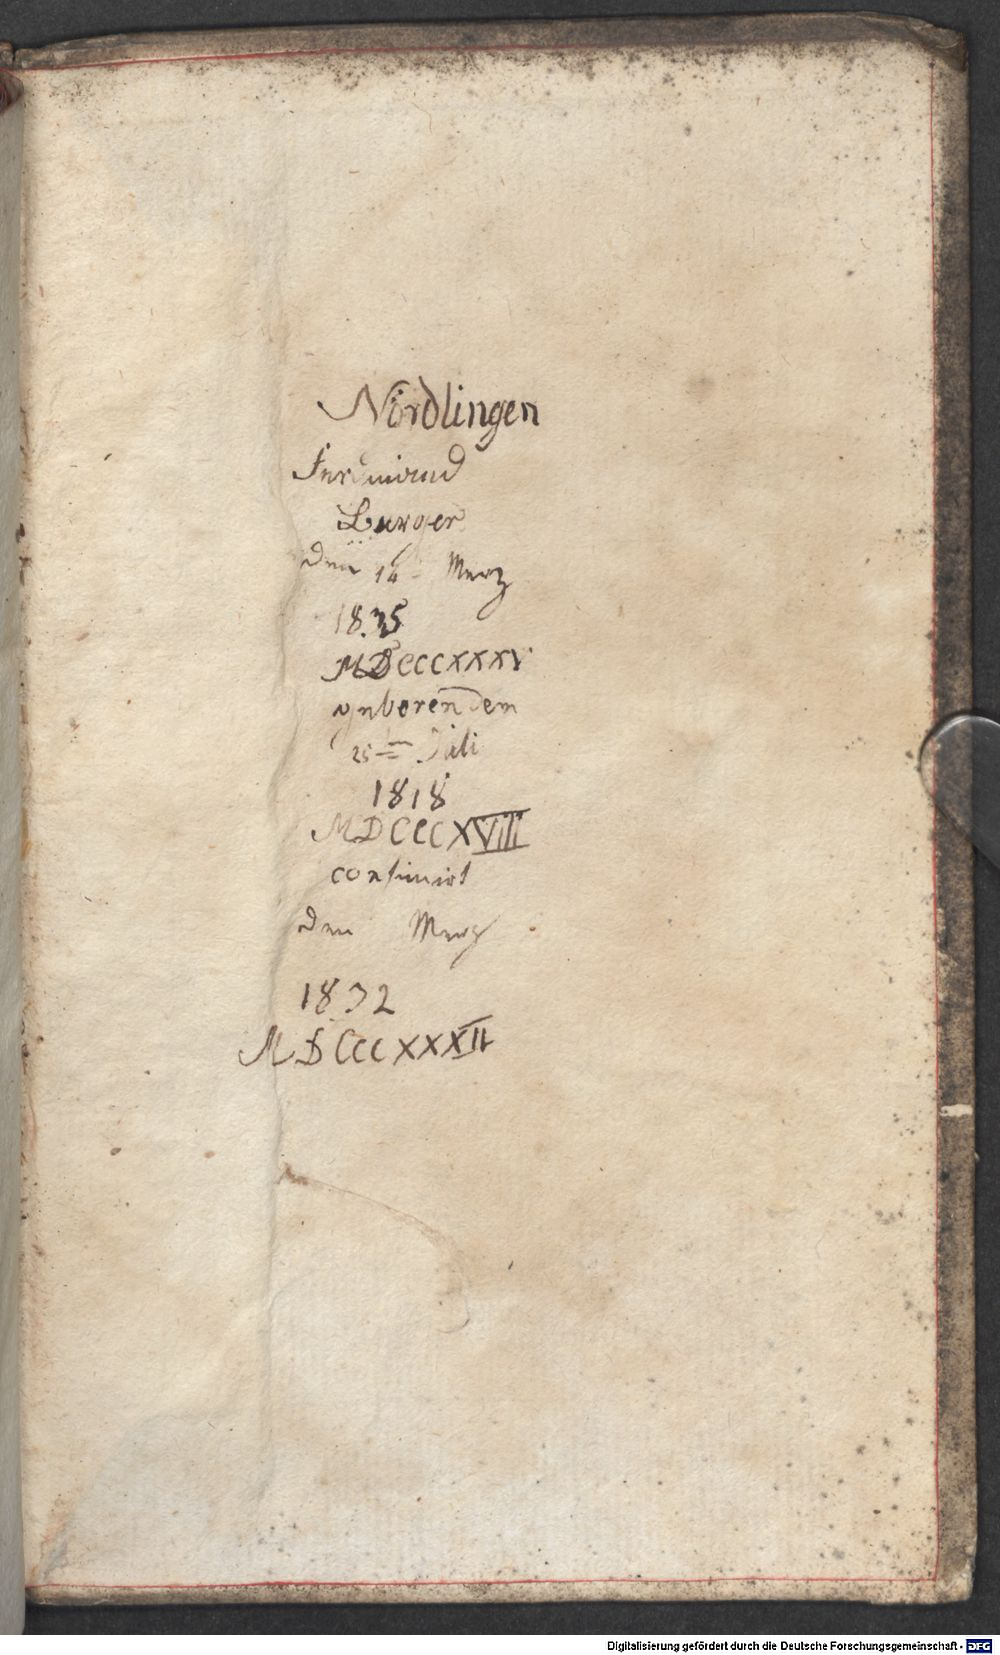 Nördlingen
Ferdinand
Burger
den 14 Merz
1835
MDCCCXXXV
geboren dem
25 Juli
1818
MDCCCXVIII
confimirt
den Merz
1832
MDCCCXXXII
Digitalisierung gefördert durch die Deutsche Forschungsgemeinschaft - DFG